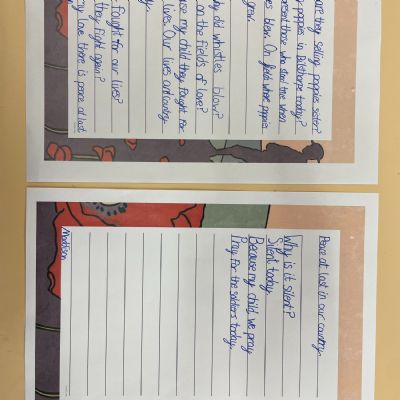 are they selling poppies sister?
poppies in Bilsthorpe today?
present those who when
blew. On fields where poppies
grow.
did whistles blow?
on the fields of love?
my child they fought for
lives. Our lives and country.
fought for our lives?
they fight again?
love there is peace at last
Peace at last in our country.
Why is it silent?
Silent today.
Because my child we pray
Pray for the today.
Madison